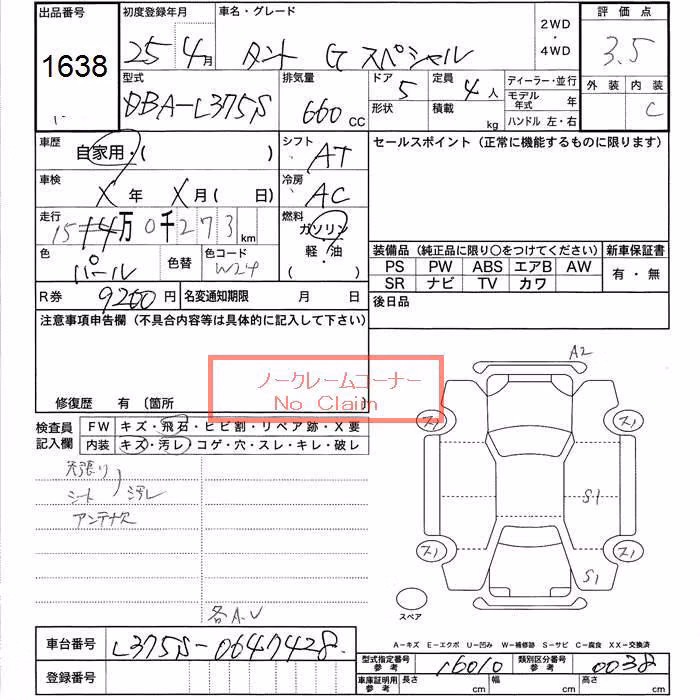 出品番号
1638
初度登録年月
25年4月
車名・グレード
タント G スペシャル
2WD
・
4WD
評価点
3.5
外装 内装
C
型式
DBA-L375S
排気量
660 CC
ドア 5
形状
定員 4人
積載 kg
ディーラー・並行
モデル年式 年
ハンドル 左・右
車歴
自家用・( )
シフト
AT
セールスポイント (正常に機能するものに限ります)
車検
X年 X月( 日)
冷房
AC
走行
15 14万 0千 273 km
燃料
ガソリン
軽・油
( )
色
パール
色替
色コード
W24
装備品 (純正品に限り○をつけてください)
新車保証書
PS PW ABS エアB AW
SR ナビ TV カワ
有・無
R券 9200円
名変通知期限 月 日
後日品
注意事項申告欄 (不具合内容等は具体的に記入して下さい)
ノークレームコーナー
No Claim
修復歴 有 〔箇所
検査員
記入欄
FW キズ・飛石・ヒビ割・リペア跡・X要
内装 キズ・汚レ・コゲ・穴・スレ・キレ・破レ
天張り
シート 汚レ
アンテナ欠
各A.U
A2
S1
S1
スペア
A-キズ E-エクボ U-凹み W-補修跡 S-サビ C-腐食 XX-交換済
車台番号
L375S-0647428
登録番号
型式指定番号
参考
16010
類別区分番号
参考
0038
車庫証明用
参考
長さ cm
幅 cm
高さ cm